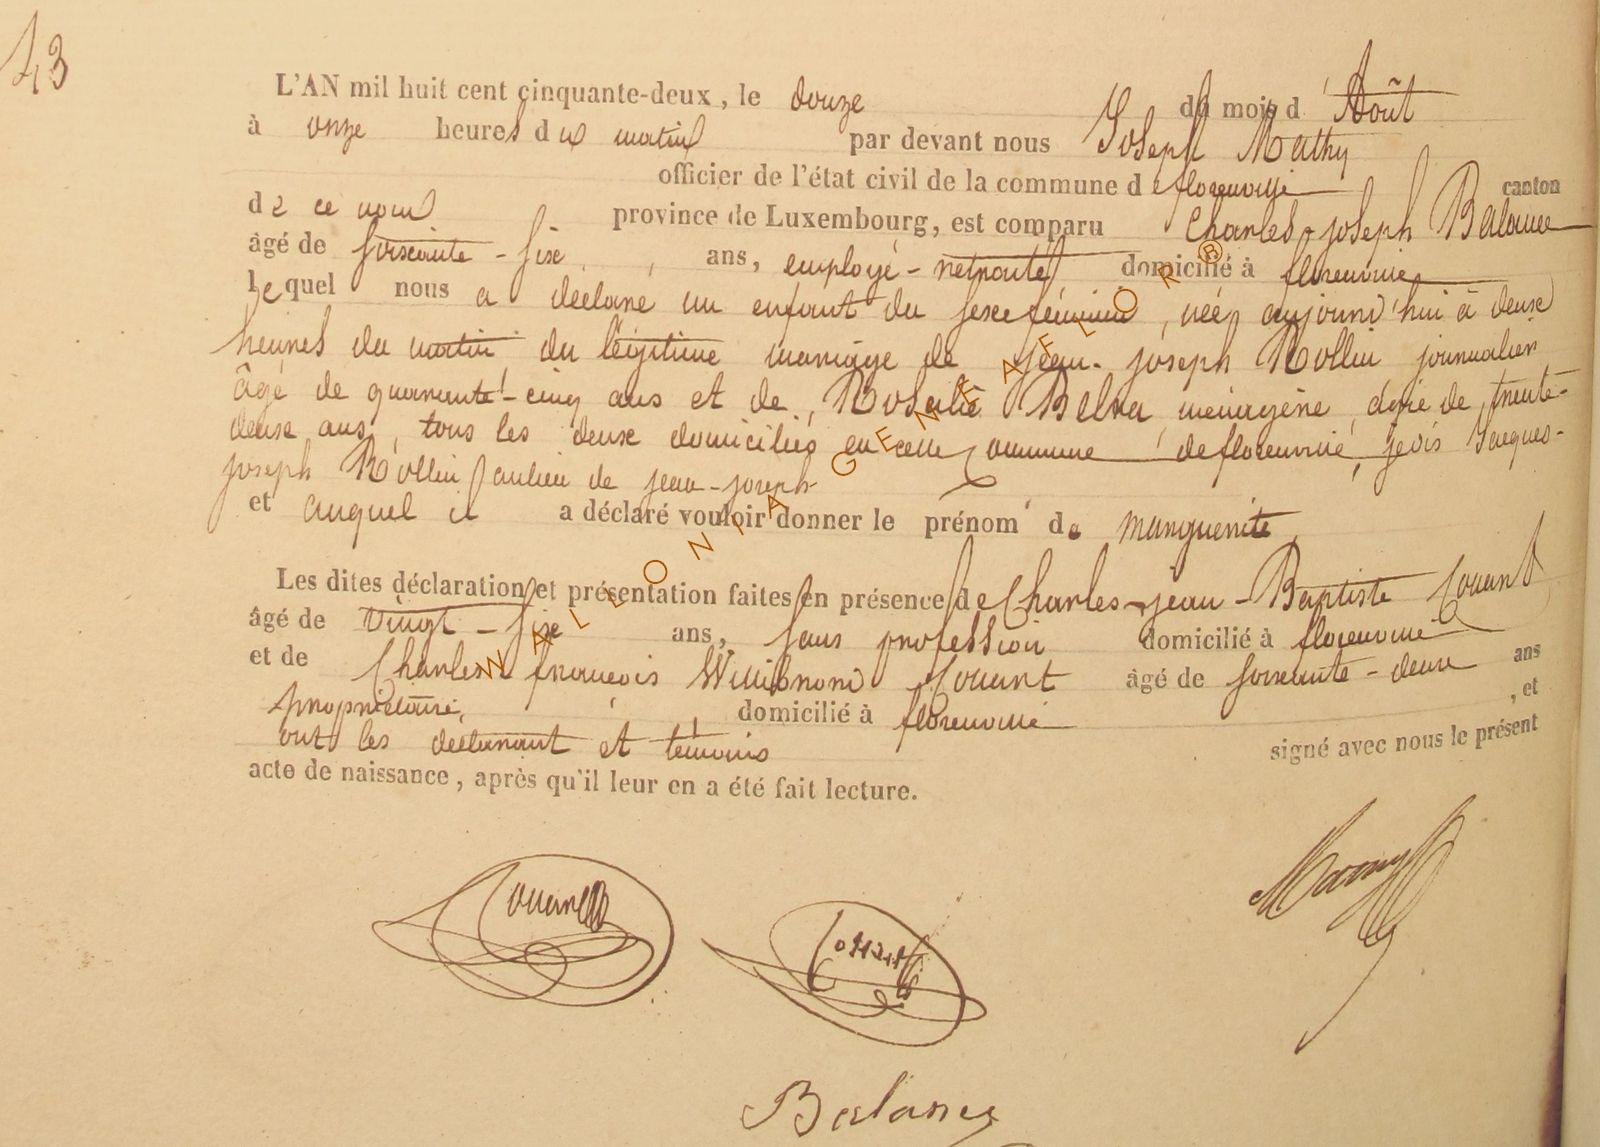 43
L'AN mil huit cent cinquante-deux, le douze du mois d'Août
à onze heures du matin par devant nous Joseph Mathy
officier de l'état civil de la commune de florenville canton
de ce nom province de Luxembourg, est comparu Charles-joseph Balance
âgé de soixante-six ans, employé-retraité, domicilié à florenville
lequel nous a déclaré un enfant du sexe féminin, née aujourd'hui à deux
heures du matin du légitime mariage de jean-joseph Rollin journalier
âgé de quarante-cinq ans et de Rosalie Belva, ménagère, âgée de trente-
deux ans, tous les deux domiciliés en cette commune de florenville, je dis Jacques-
joseph Rollin aulieu de jean-joseph
et auquel il a déclaré vouloir donner le prénom de marguerite,
Les dites déclaration et présentation faites en présence de Charles-jean-Baptiste
âgé de vingt-six ans, sans profession domicilié à florenville
et de Charles françois Willibrord âgé de soixante-deux ans
propriétaire, domicilié à florenville, et
ont les déclarant et témoins signé avec nous le présent
acte de naissance, après qu'il leur en a été fait lecture.
Mathy
Balance
WALLONIA GENEAFLOR®